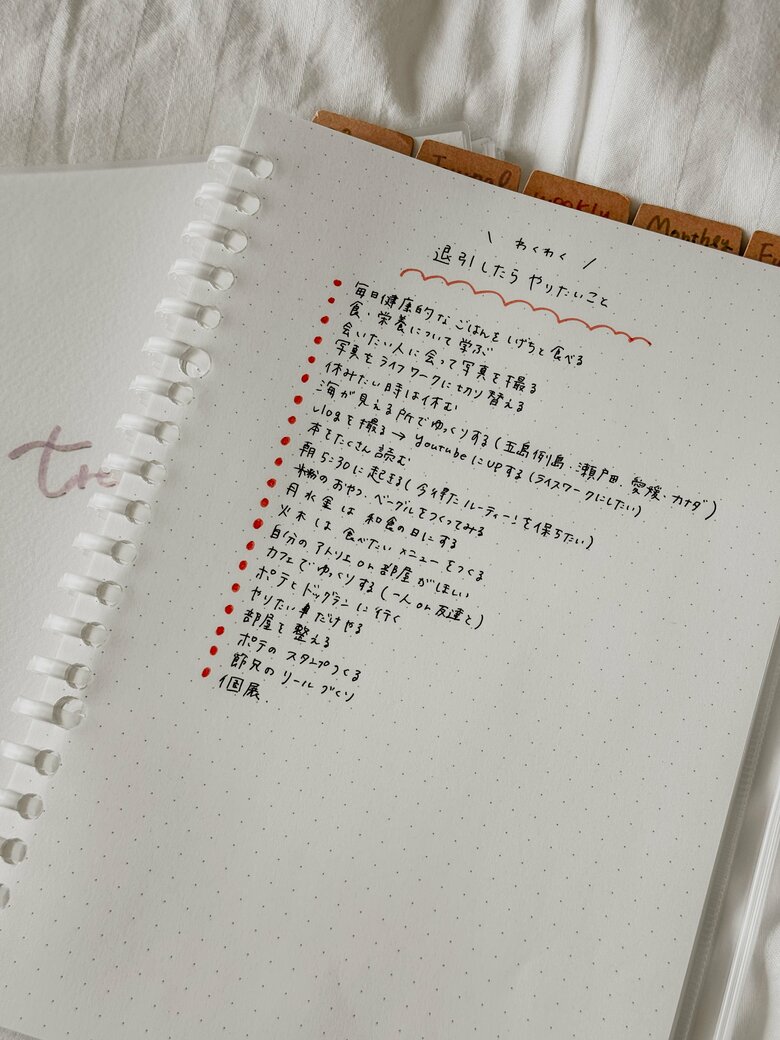 Journal
weekly
Monthly
\ わくわく /
退引したら やりたいこと
毎日健康的な ごはんを しげちと 食べる
食・栄養について 学ぶ
会いたい人に会って写真を撮る
写真をライフワークに切り替える
休みたい時は休む
海が見える所でゆっくりする(五島列島・瀬戸田・愛媛・カナダ)
vlogを撮る→youtubeにUPする(ライスワークにしたい)
本をたくさん読む
朝5:30に起きる(今得たルーティーンを保ちたい)
米粉のおやつ・ベーグルをつくってみる
月水金は 和食の日にする
火木は 食べたいメニューをつくる
自分のアトリエor部屋がほしい
カフェでゆっくりする(一人or友達と)
ポテとドッグランに行く
やりたい事だけやる
部屋を整える
ポテの スタンプつくる
節兄の リールづくり
個展
tre